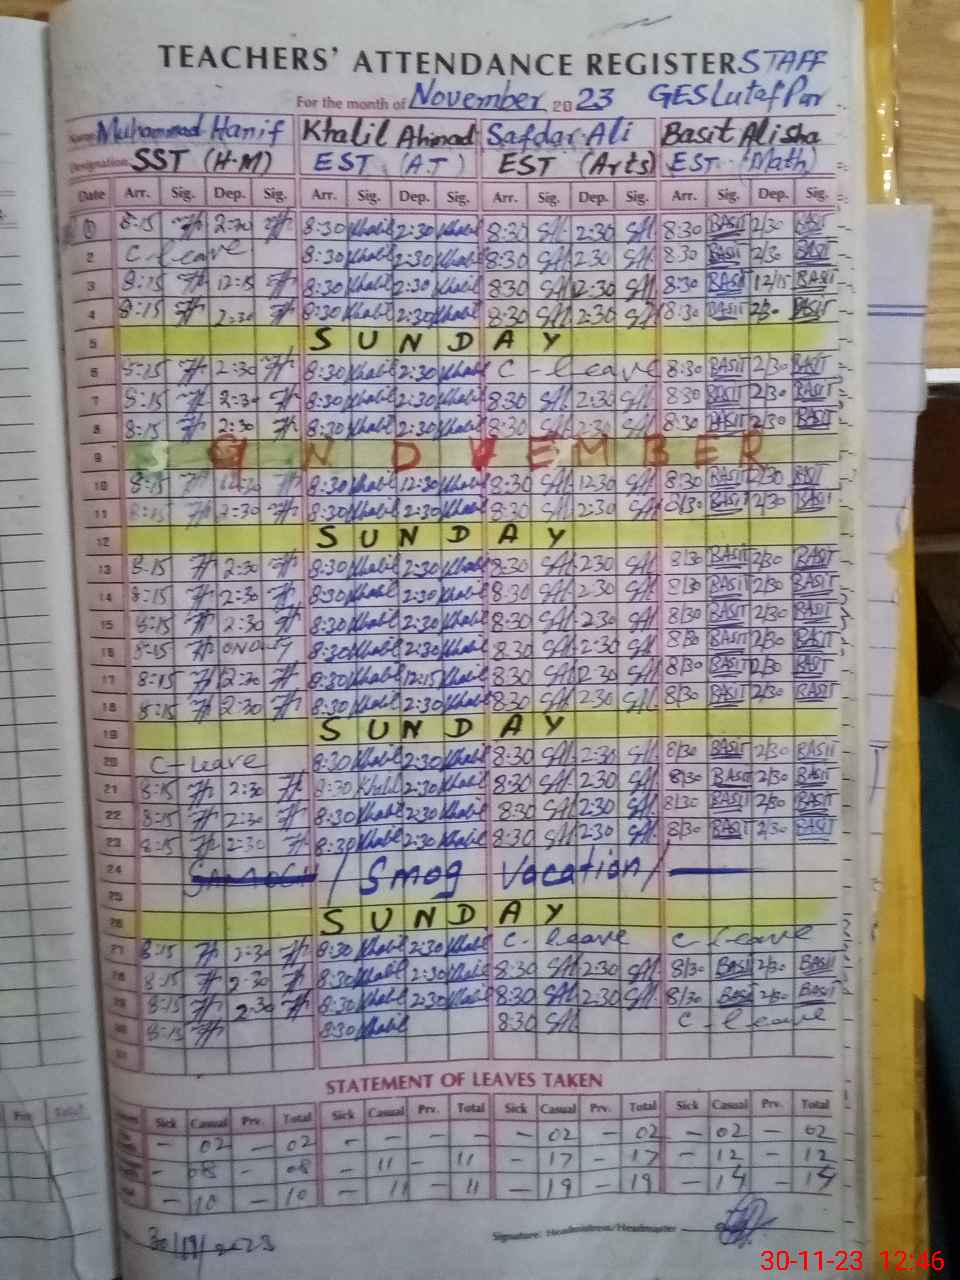 TEACHERS' ATTENDANCE REGISTER STAFF
For the month of November 2023 GES Lutaf Pur
Name Muhammad Hanif Khalil Ahmad Safdar Ali Basit Ali sha
Designation SST (H.M) EST (A.T) EST (Arts) EST (Math)
Date Arr. Sig. Dep. Sig. Arr. Sig. Dep. Sig. Arr. Sig. Dep. Sig. Arr. Sig. Dep. Sig.
1 8:15 2:30 8:30 Khalil 2:30 Khalil 8:30 SA 2:30 SA 8:30 BASIT 2/30 BASIT
2 C leave 8:30 Khalil 2:30 Khalil 8:30 SA 2:30 SA 8:30 BASIT 2/30 BASIT
3 8:15 12:15 8:30 Khalil 2:30 Khalil 8:30 SA 12:30 SA 8:30 BASIT 12/15 BASIT
4 8:15 2:30 8:30 Khalil 2:30 Khalil 8:30 SA 2:30 SA 8:30 BASIT 2/30 BASIT
5 SUNDAY
6 8:15 2:30 8:30 Khalil 2:30 Khalil C - leave 8:30 BASIT 2/30 BASIT
7 8:15 2:30 8:30 Khalil 2:30 Khalil 8:30 SA 2:30 SA 8:30 BASIT 2/30 BASIT
8 8:15 2:30 8:30 Khalil 2:30 Khalil 8:30 SA 2:30 SA 8:30 BASIT 2/30 BASIT
9 N O V E M B E R
10 8:15 12:30 8:30 Khalil 12:30 Khalil 8:30 SA 12:30 SA 8/30 BASIT 2/30 BASIT
11 8:15 2:30 8:30 Khalil 2:30 Khalil 8:30 SA 2:30 SA 8/30 BASIT 2/30 BASIT
12 SUNDAY
13 8:15 2:30 8:30 Khalil 2:30 Khalil 8:30 SA 2:30 SA 8/30 BASIT 2/30 BASIT
14 8:15 2:30 8:30 Khalil 2:30 Khalil 8:30 SA 2:30 SA 8/30 BASIT 2/30 BASIT
15 8:15 2:30 8:30 Khalil 2:30 Khalil 8:30 SA 2:30 SA 8/30 BASIT 2/30 BASIT
16 8:15 8:30 Khalil 2:30 Khalil 8:30 SA 2:30 SA 8/30 BASIT 2/30 BASIT
17 8:15 12:30 8:30 Khalil 12:15 Khalil 8:30 SA 12:30 SA 8/30 BASIT 2/30 BASIT
18 8:15 2:30 8:30 Khalil 2:30 Khalil 8:30 SA 2:30 SA 8/30 BASIT 2/30 BASIT
19 SUNDAY
20 C-Leave 8:30 Khalil 2:30 Khalil 8:30 SA 2:30 SA 8/30 BASIT 2/30 BASIT
21 8:15 2:30 8:30 Khalil 2:30 Khalil 8:30 SA 2:30 SA 8/30 BASIT 2/30 BASIT
22 8:15 2:30 8:30 Khalil 2:30 Khalil 8:30 SA 2:30 SA 8/30 BASIT 2/30 BASIT
23 8:15 2:30 8:30 Khalil 2:30 Khalil 8:30 SA 2:30 SA 8/30 BASIT 2/30 BASIT
24 / Smog Vacation /
25
26 SUNDAY
27 8:15 2:30 8:30 Khalil 2:30 Khalil C- leave C leave
28 8:15 2:30 8:30 Khalil 2:30 Khalil 8:30 SA 2:30 SA 8/30 BASIT 2/30 BASIT
29 8:15 2:30 8:30 Khalil 2:30 Khalil 8:30 SA 2:30 SA 8/30 BASIT 2/30 BASIT
30 8:15 8:30 Khalil 8:30 SA C - leave
31
STATEMENT OF LEAVES TAKEN
Sick Casual Prv. Total Sick Casual Prv. Total Sick Casual Prv. Total Sick Casual Prv. Total
- 02 - 02 - - - - - 02 - 02 - 02 - 02
- 08 - 08 - 11 - 11 - 17 - 17 - 12 - 12
- 10 - 10 - 11 - 11 - 19 - 19 - 14 - 14
30/11/2023 Signature: Headmistress/Headmaster
30-11-23 12:46